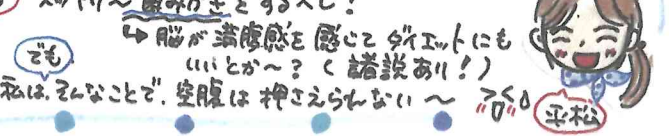 歯みがきをするべし!
↳ 脳が満腹感を感じてダイエットにも
いいとか～?(諸説あり!)
でも
私は、そんなことで、空腹は押さえられない～
平松